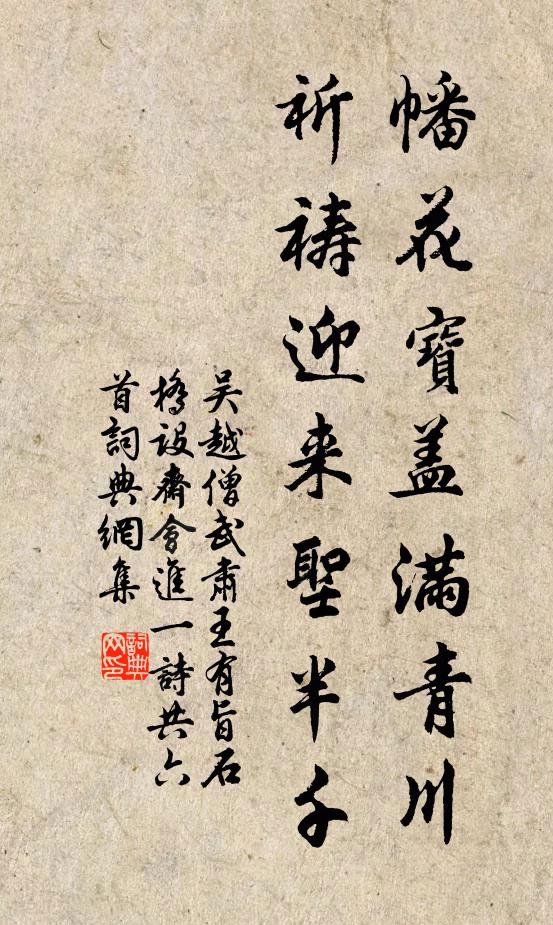 幡花寶蓋滿青川
祈禱迎来聖半千
吴越僧武肅王有旨石
橋设齋會進一詩共六
首詞典網集
詞典網印